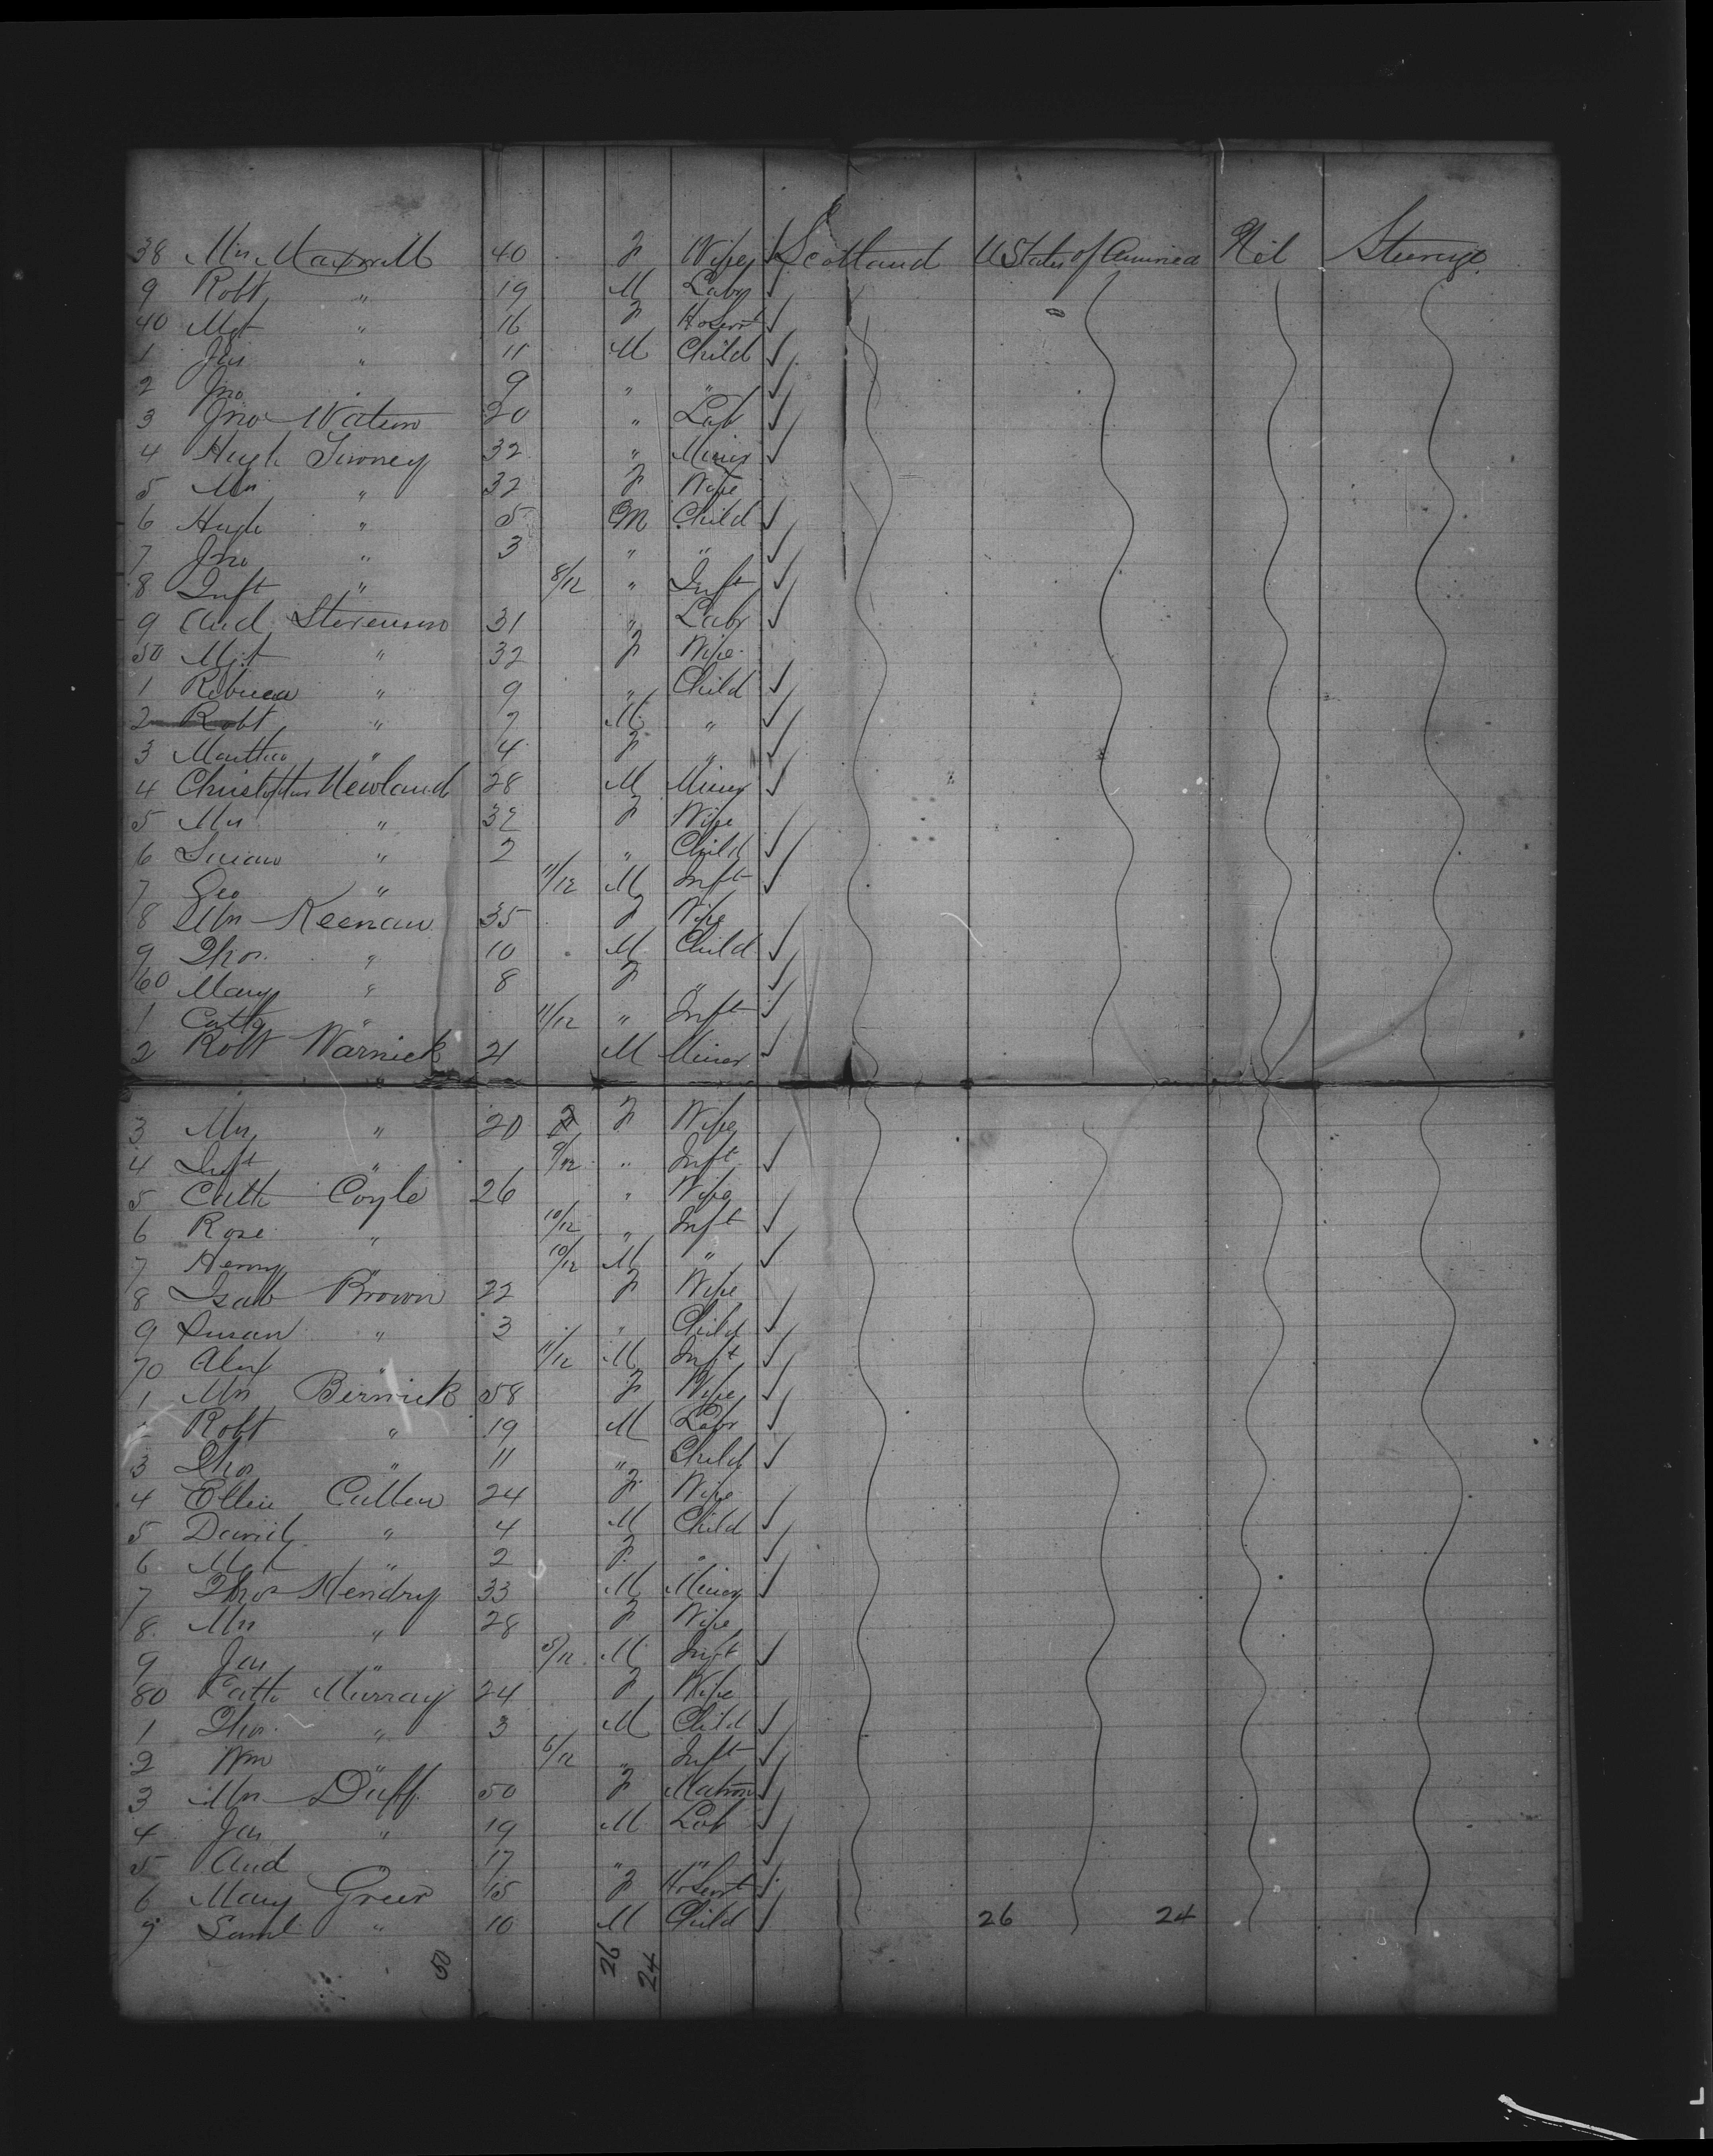 38 Mrs Maxwell 40 F Wife ✓ Scotland U States of America Nil Steerage
9 Robt " 19 M Labr ✓
40 Mgt " 16 F HoServt ✓
1 Jas " 11 M Child ✓
2 Jno " 9 " " ✓
3 Jno Watson 20 " Lab ✓
4 Hugh 32 " Miner ✓
5 Mrs " 32 F Wife
6 Hugh " 5 M Child ✓
7 Jno " 3 " " ✓
8 Inft " 8/12 " Inft ✓
9 And Stevenson 31 " Labr ✓
50 Mgt " 32 F Wife
1 Rebecca " 9 " Child ✓
2 Robt " 7 M " ✓
3 Martha " 4 F " ✓
4 Christopher Newlands 28 M Miner ✓
5 Mrs " 32 F Wife
6 Susan " 2 " Child ✓
7 Geo " 11/12 M Inft ✓
8 Mrs Keenan 35 F Wife
9 Thos " 10 M Child ✓
60 Mary " 8 F " ✓
1 Cath " 11/12 " Inft ✓
2 Robt Warnick 21 M Miner ✓
3 Mrs " 20 F Wife
4 Inft " 9/12 " Inft ✓
5 Cath Coyle 26 " Wife
6 Rose " 10/12 " Inft ✓
7 Henry " 10/12 M " ✓
8 Isab Brown 22 F Wife
9 Susan " 3 " Child ✓
70 Alex " 11/12 M Inft ✓
1 Mrs Bernick 58 F Wife ✓
2 Robt " 19 M Labr ✓
3 Thos " 11 " Child ✓
4 Ellen Cullen 24 F Wife
5 David " 4 M Child ✓
6 Mgt " 2 F " ✓
7 Thos Hendry 33 M Miner ✓
8 Mrs " 28 F Wife
9 Jas " 5/12 M Inft ✓
80 Cath Murray 24 F Wife
1 Thos " 3 M Child ✓
2 Wm " 6/12 " Inft ✓
3 Mrs Duff 50 F Matron ✓
4 Jas " 19 M Lab ✓
5 And " 17 " " ✓
6 Mary Greer 15 F HoServt ✓
7 Saml " 10 M Child ✓ 26 24
50 26 24